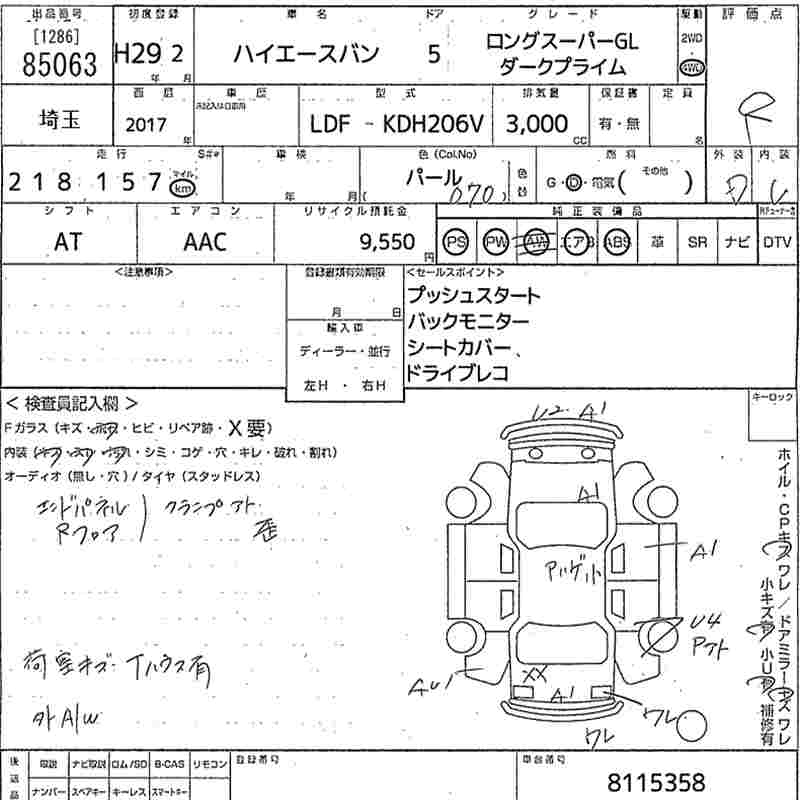 出品番号 初度登録 車名 ドア グレード 駆動 評価点
[1286]
85063 H29 2 年 月 ハイエースバン 5 ロングスーパーGL ダークプライム 2WD 4WD
R
西暦 車歴 型式 排気量 保証書 定員
埼玉 2017 年 LDF - KDH206V 3,000 CC 有・無 名
走行 S#* 車検 色 (Col.No) 色替 燃料 外装 内装
218157 マイル km 年 月 パール 070 G・D・電気( その他 ) D
シフト エアコン リサイクル預託金 純正装備品
AT AAC 9,550 円 PS PW AW エアB ABS 革 SR ナビ DTV
<注意事項> 登録書類有効期限 <セールスポイント>
月 日
プッシュスタート
バックモニター
シートカバー、
ドライブレコ
輸入車
ディーラー・並行
左H ・ 右H
キーロック
< 検査員記入欄 >
Fガラス (キズ・ ・ヒビ・リペア跡・X要)
・シミ・コゲ・穴・キレ・破れ・割れ)
オーディオ (無し・穴) / タイヤ (スタッドレス)
エンドパネル
Rフロア
クランプアト
歪
荷室キズ・
有
外A/W
U2 A1
A1
A1
U4
XX
A1
ワレ
ワレ
ホイル・CPキズワレ/ドアミラーキズワレ
補修有
後返品 取説 ナビ取説 ロム/SD B-CAS リモコン 登録番号 車台番号
ナンバー スペアキー キーレス スマートキー
8115358